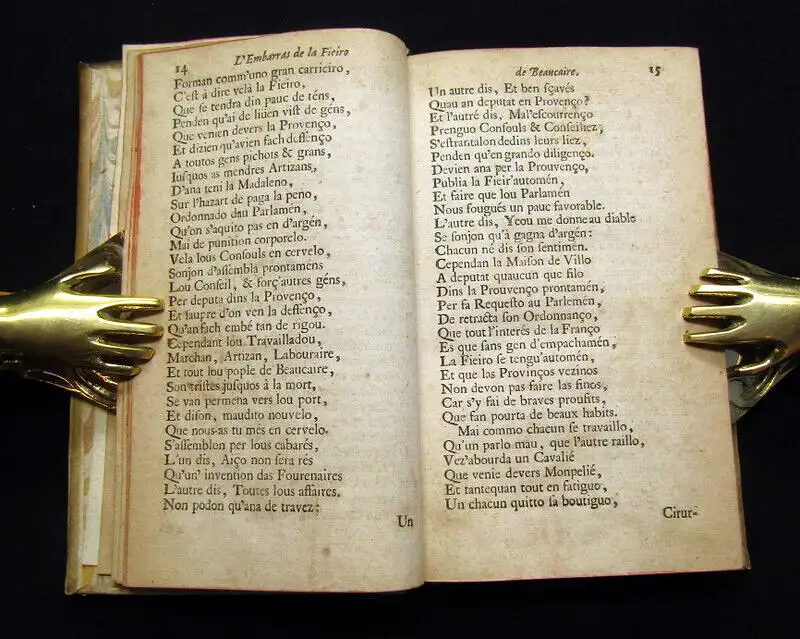 14
L'Embarras de la Fieiro
Forman comm'uno gran carrieiro,
C'est à dire velà la Fieiro,
Que se tendra din pauc de téns,
Penden qu'ai de liüen vist de géns,
Que venien devers la Provenço,
Et dizien qu'avien fach deffenço
A toutos gens pichots & grans,
Iusquos as mendres Artizans,
D'ana teni la Madaleno,
Sur l'hazart de paga la peno,
Ordonnado dau Parlamén,
Qu'on s'aquito pas en d'argén,
Mai de punition corporelo.
Vela lous Consouls en cervelo,
Sonjon d'assembla prontaméns
Lou Conseil, & forç'autres géns,
Per deputa dins la Provenço,
Et saupre d'on ven la deffenço,
Qu'an fach embé tan de rigou.
Cependant lou Travailladou,
Marchan, Artizan, Labouraire,
Et tout lou pople de Beaucaire,
Son tristes jusquos à la mort,
Se van permena vers lou port,
Et dison, maudito nouvelo,
Que nous-as tu més en cervelo.
S'assemblon per lous cabarés,
L'un dis, Aiço non sera rés
Qu'un' invention das Fourenaires
L'autre dis, Toutes lous affaires.
Non podon qu'ana de travez:
Un
de Beaucaire.
15
Un autre dis, Et ben sçavés
Quau an deputat en Provenço?
Et l'autré dis, Mal'escourrenço
Prenguo Consouls & Conseillez,
S'estrantalon dedins leurs liez,
Penden qu'en grando diligenço.
Devien ana per la Prouvenço,
Publia la Fieir'automén,
Et faire que lou Parlamén
Nous fougués un pauc favorable.
L'autre dis, Yeou me donneau diable
Se sonjon qu'à gagna d'argén:
Chacun né dis son sentimén.
Cependan la Maison de Villo
A deputat quaucun que filo
Dins la Prouvenço prontamén,
Per fa Requesto au Parlemén,
De retracta son Ordonnanço,
Que tout l'interés de la Franço
Es que sans gen d'empachamén,
La Fieiro se tengu'automén,
Et que las Provinços vezinos
Non devon pas faire las finos,
Car s'y fai de braves proufits,
Que fan pourta de beaux habits.
Mai commo chacun se travaillo,
Qu'un parlo mau, que l'autre raillo,
Vez'abourda un Cavalié
Que venie devers Monpelié,
Et tantequan tout en fatiguo,
Un chacun quitto sa boutiguo,
Cirur-